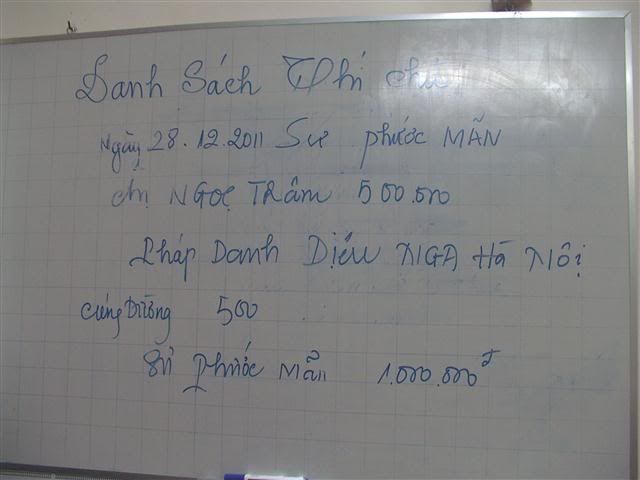 Danh Sách Thí chủ
Ngày 28.12.2011 Sư phước MÃN
chị NGỌC TRÂM 500.000
Pháp Danh Diệu NGA Hà Nội
cúng Dường 500
Sư Phước Mãn 1.000.000đ